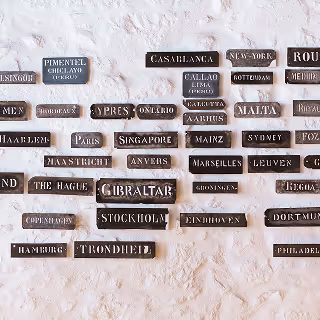 CASABLANCA
NEW-YORK
ROU
PIMENTEL
CHICLAYO
(PERU)
LSINGOR
CALLAO
LIMA
(PERU)
ROTTERDAM
MEN
BORDEAUX
YPRES
ONTARIO
CALCUTTA
AARHUS
MALTA
HAARLEM
PARIS
SINGAPORE
MAINZ
SYDNEY
FOZ
MAASTRICHT
ANVERS
MARSEILLES
LEUVEN
G
ND
THE HAGUE
GIBRALTAR
GRONINGEN
REGOA
COPENHAGEN
STOCKHOLM
EINDHOVEN
DORTMUN
HAMBURG
TRONDHEIM
PHILADEL